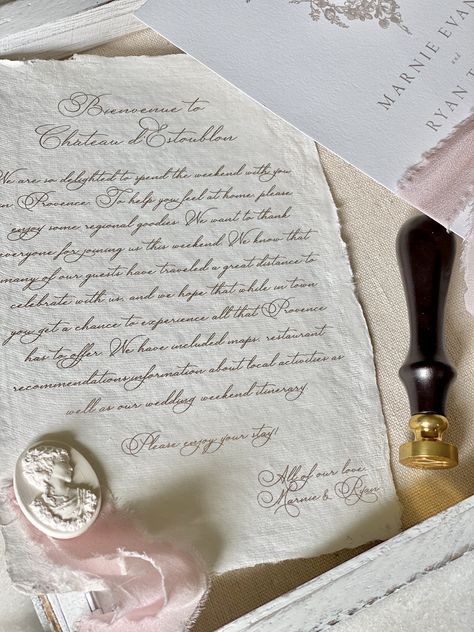 Bienvenue to
Château d'Estoublon
We are so delighted to spend the weekend with you
in Provence. To help you feel at home, please
enjoy some regional goodies. We want to thank
everyone for joining us this weekend. We know that
many of our guests have traveled a great distance to
celebrate with us, and we hope that while in town
you get a chance to experience all that Provence
has to offer. We have included maps, restaurant
recommendations, information about local activities as
well as our wedding weekend itinerary
Please enjoy your stay!
All of our love,
Marnie & Ryan
MARNIE EVAN
and
RYAN